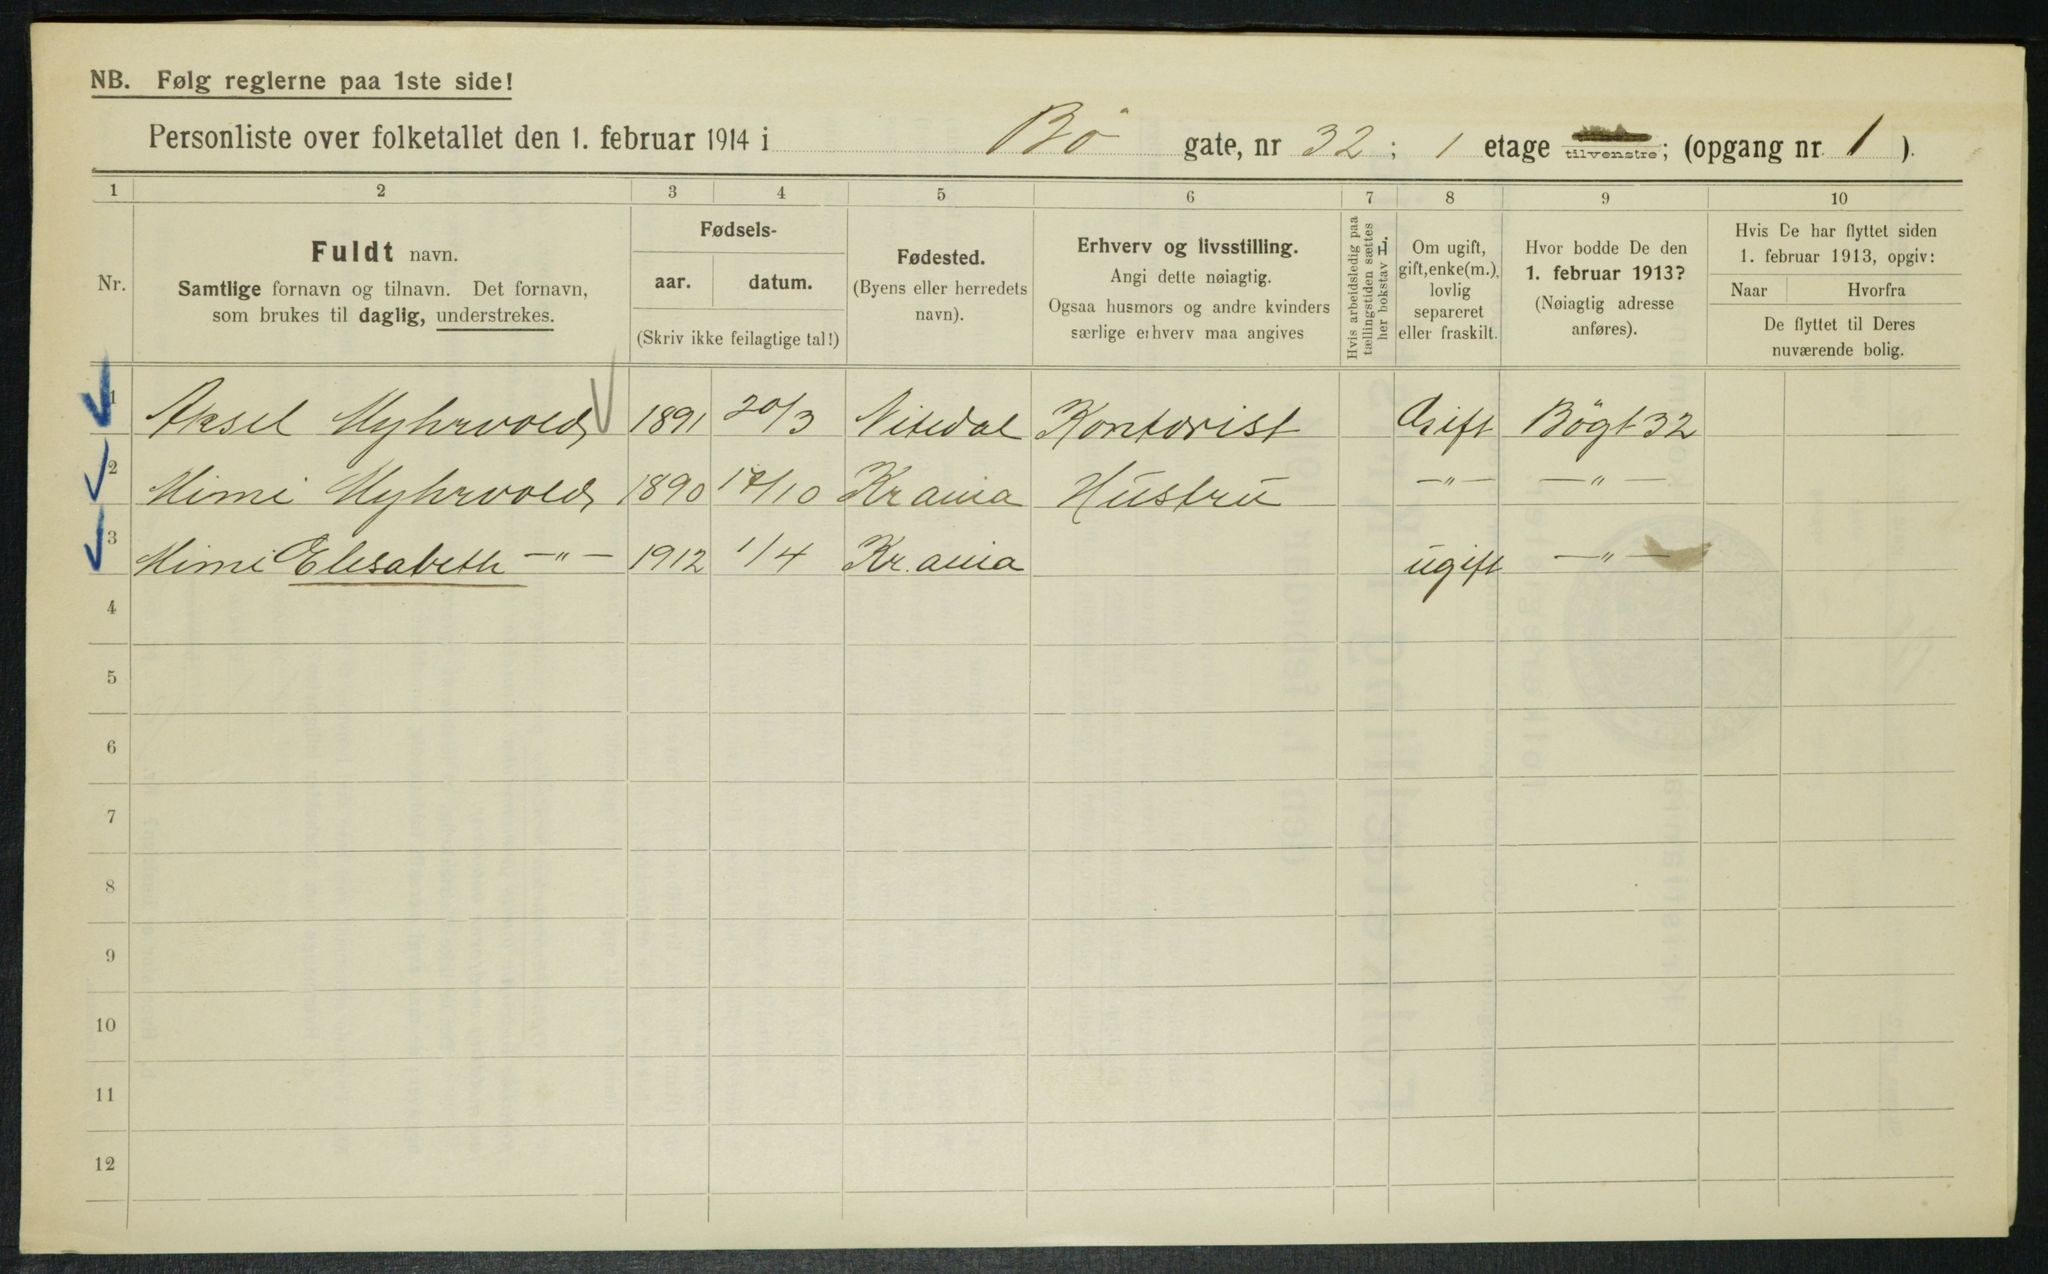 NB. Følg reglerne paa 1ste side!
Personliste over folketallet den 1. februar 1914 i Bö gate, nr 32; 1 etage tilvenstre; (opgang nr. 1).
1 2 3 4 5 6 7 8 9 10
Nr.
Fuldt navn.
Samtlige fornavn og tilnavn. Det fornavn,
som brukes til daglig, understrekes.
Fødsels-
aar. datum.
(Skriv ikke feilagtige tal!)
Fødested.
(Byens eller herredets
navn).
Erhverv og livsstilling.
Angi dette nøiagtig.
Ogsaa husmors og andre kvinders
særlige erhverv maa angives
Hvis arbeidsledig paa
tællingstiden sættes
her bokstav L.
Om ugift,
gift, enke(m.),
lovlig
separeret
eller fraskilt.
Hvor bodde De den
1. februar 1913?
(Nøiagtig adresse
anføres).
Hvis De har flyttet siden
1. februar 1913, opgiv:
Naar Hvorfra
De flyttet til Deres
nuværende bolig.
1 Aksel Myhrvold 1891 20/3 Nitedal Kontorist Gift Bögt 32
2 Mimi Myhrvold 1890 17/10 Kr.ania Hustru —„— —„—
3 Mimi Elisabeth —„— 1912 1/4 Kr.ania ugift —„—
4
5
6
7
8
9
10
11
12